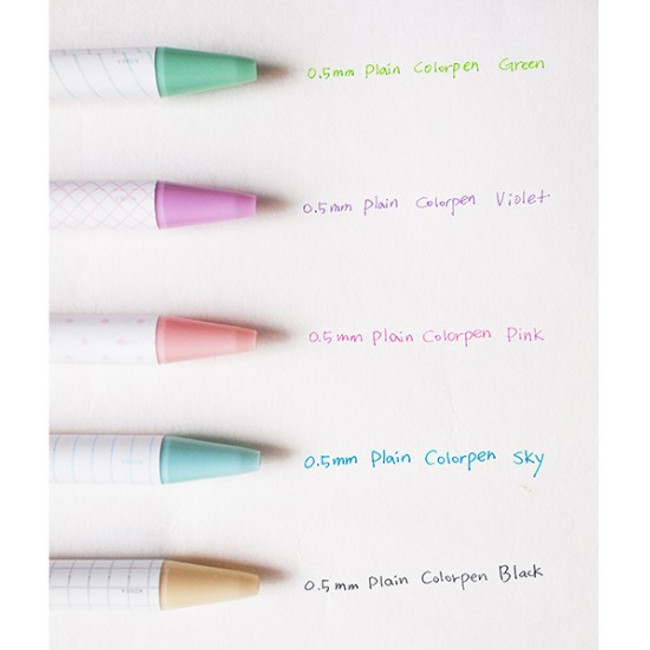 0.5mm Plain Colorpen Green
0.5mm Plain Colorpen Violet
0.5mm Plain Colorpen Pink
0.5mm Plain Colorpen Sky
0.5mm Plain Colorpen Black